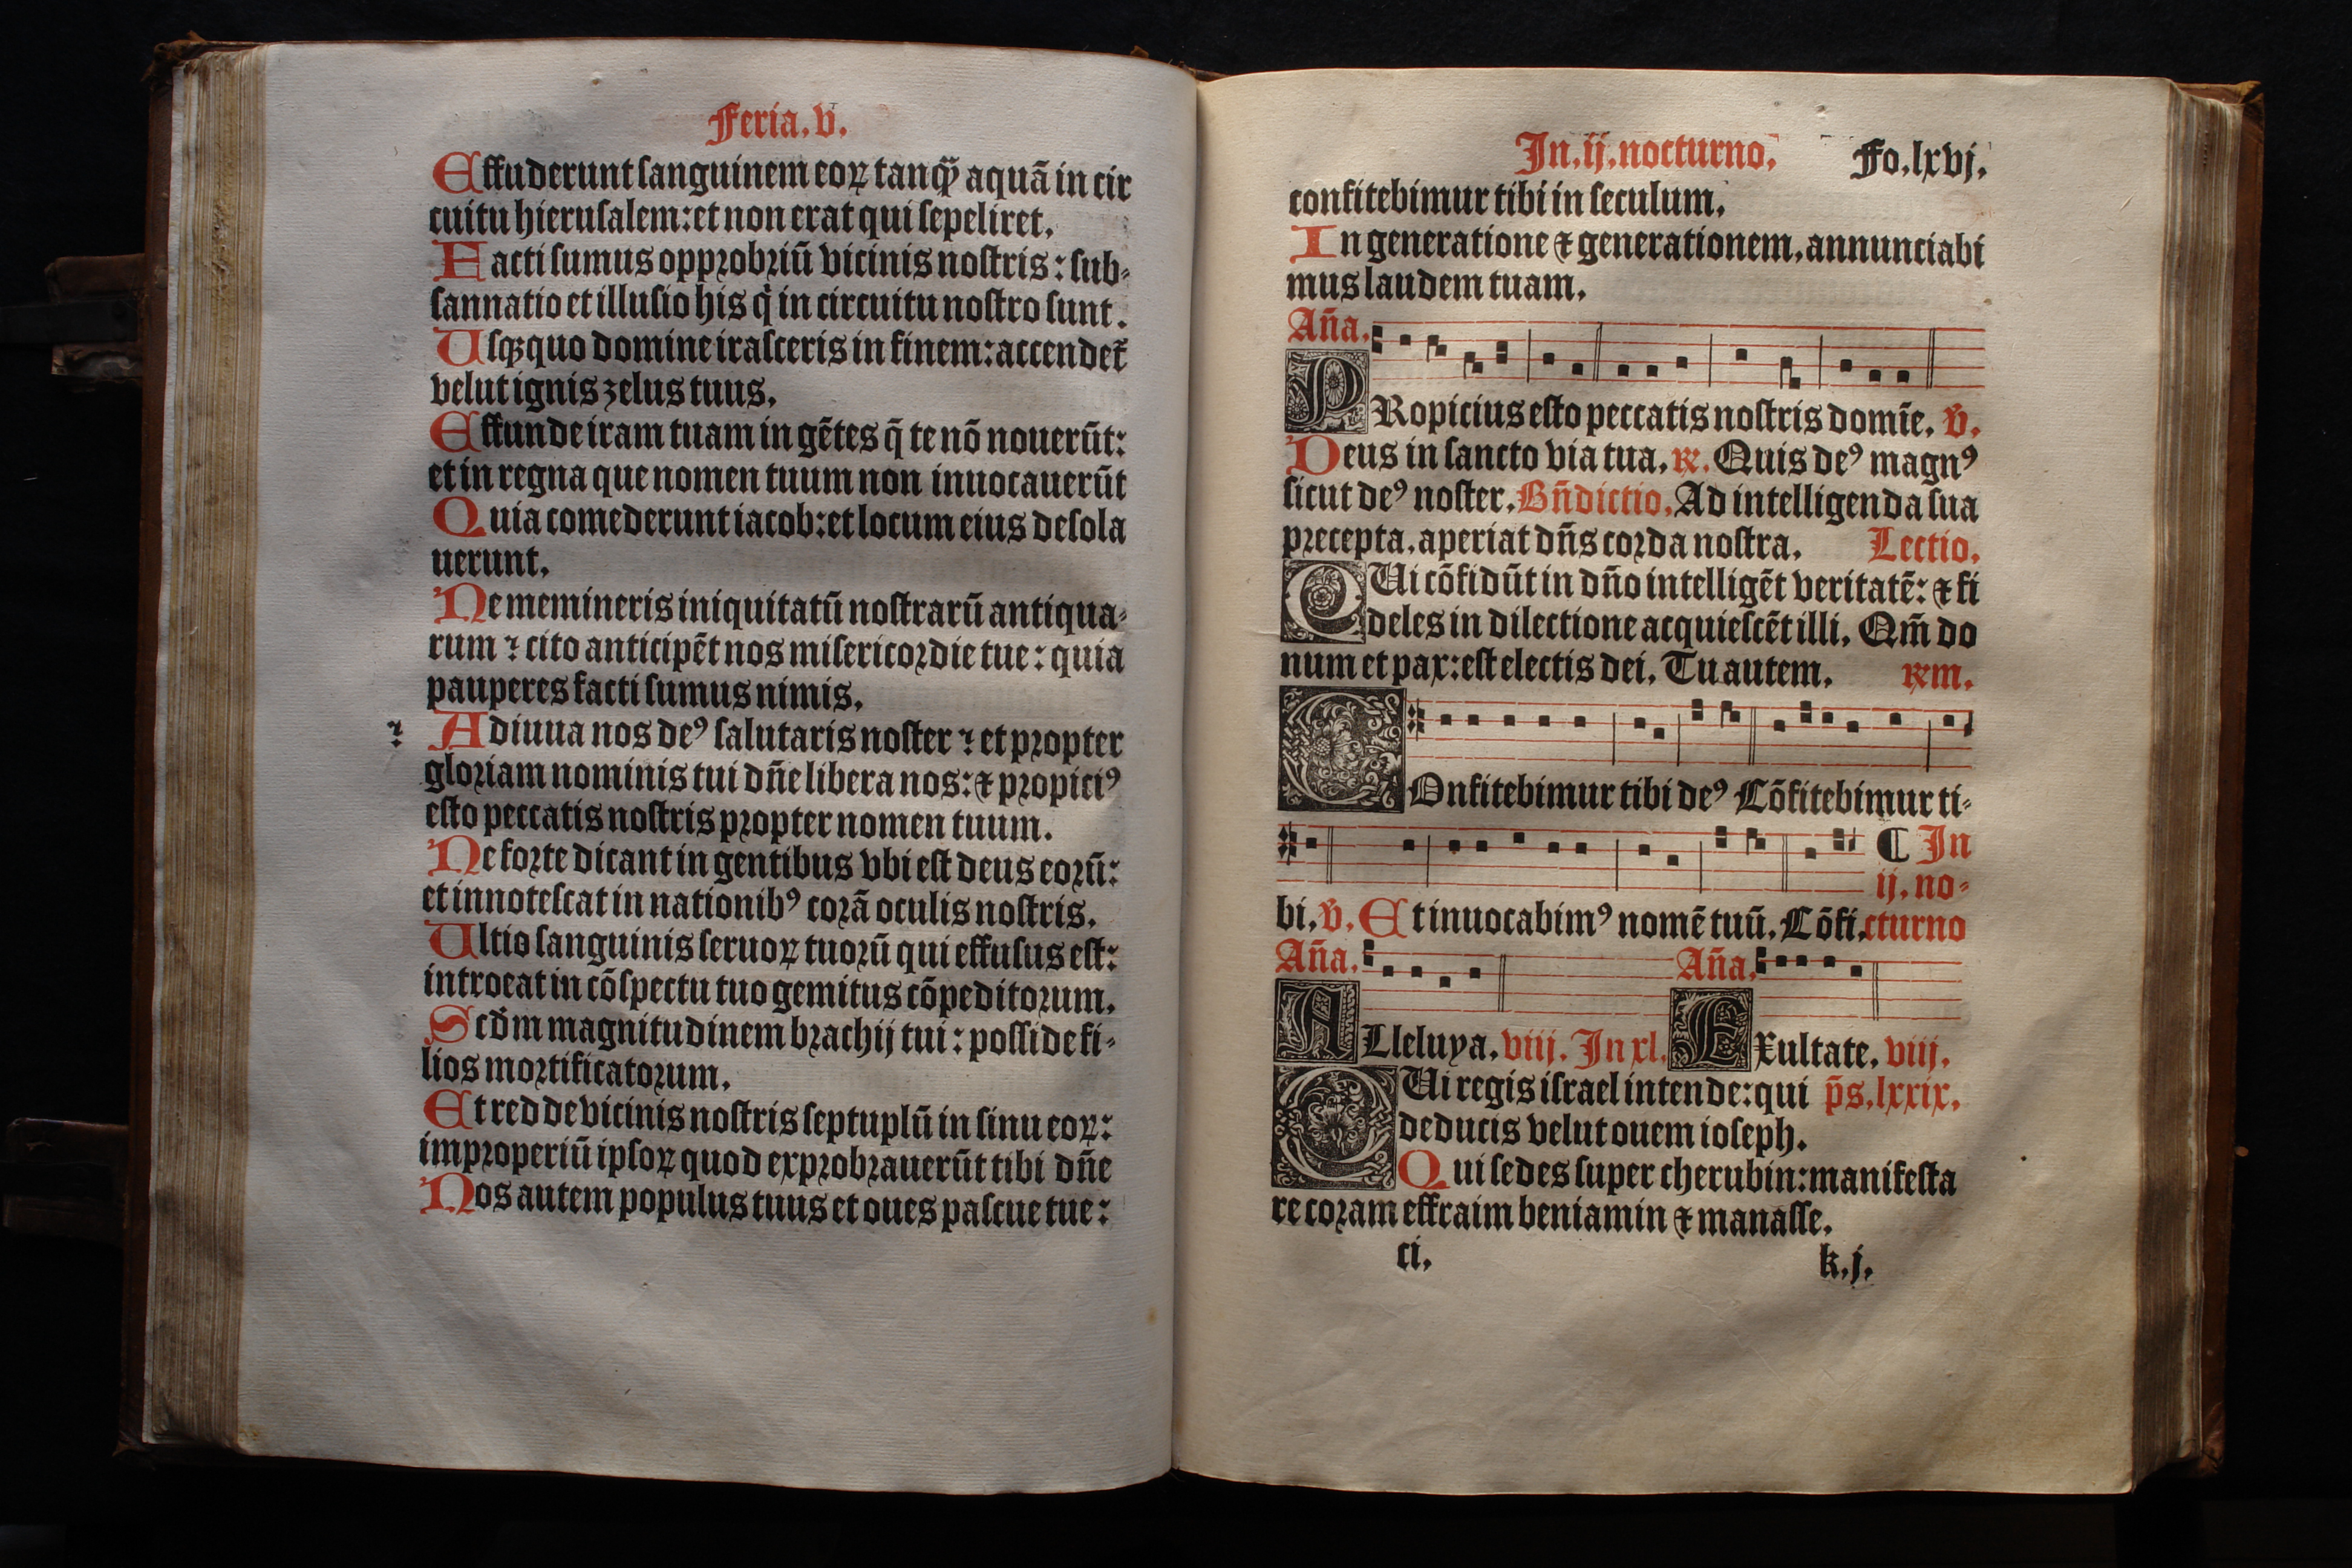 Feria. v.
Effuderunt sanguinem eoꝝ tanꝙ̃ aquã in cir
cuitu hierusalem: et non erat qui sepeliret.
Facti sumus opprobriũ vicinis nostris: sub-
sannatio et illusio his q̇ in circuitu nostro sunt.
Usqꝫ quo domine irasceris in finem: accendet̃
velut ignis zelus tuus.
Effunde iram tuam in gẽtes q̃ te nõ nouerũt:
et in regna que nomen tuum non inuocauerũt
Quia comederunt iacob: et locum eius desola
uerunt.
Ne memineris iniquitatũ nostrarũ antiqua-
rum ⁊ cito anticipẽt nos misericordie tue: quia
pauperes facti sumus nimis.
⁊ Adiuua nos deꝰ salutaris noster ⁊ et propter
gloriam nominis tui dñe libera nos: ⁊ propiciꝰ
esto peccatis nostris propter nomen tuum.
Ne forte dicant in gentibus vbi est deus eorũ:
et innotescat in nationibꝰ corã oculis nostris.
Ultio sanguinis seruoꝝ tuorũ qui effusus est:
introeat in cõspectu tuo gemitus cõpeditorum.
Scd̃m magnitudinem brachij tui: posside fi-
lios mortificatorum.
Et redde vicinis nostris septuplũ in sinu eoꝝ:
improperiũ ipsoꝝ quod exprobrauerũt tibi dñe
Nos autem populus tuus et oues pascue tue:
In. ij. nocturno. Fo. lxvj.
confitebimur tibi in seculum.
In generatione ⁊ generationem. annunciabi
mus laudem tuam.
Aña.
PRopicius esto peccatis nostris domĩe. ṽ.
Deus in sancto via tua. ℞. Quis deꝰ magnꝰ
sicut deꝰ noster. Bñdictio. Ad intelligenda sua
precepta. aperiat dñs corda nostra. Lectio.
QUi cõfidũt in dño intelligẽt veritatẽ: ⁊ fi
deles in dilectione acquiescẽt illi. Qm̃ do
num et pax: est electis dei. Tu autem. ℞m.
COnfitebimur tibi deꝰ Cõfitebimur ti-
¶ In
ij. no-
bi. ṽ. Et inuocabimꝰ nomẽ tuũ. Cõfi. cturno
Aña. Aña.
ALleluya. viij. In xl. EXultate. viij.
QUi regis israel intende: qui p̃s. lxxix.
deducis velut ouem ioseph.
Qui sedes super cherubin: manifesta
re coram effraim beniamin ⁊ manasse.
ci. k. j.